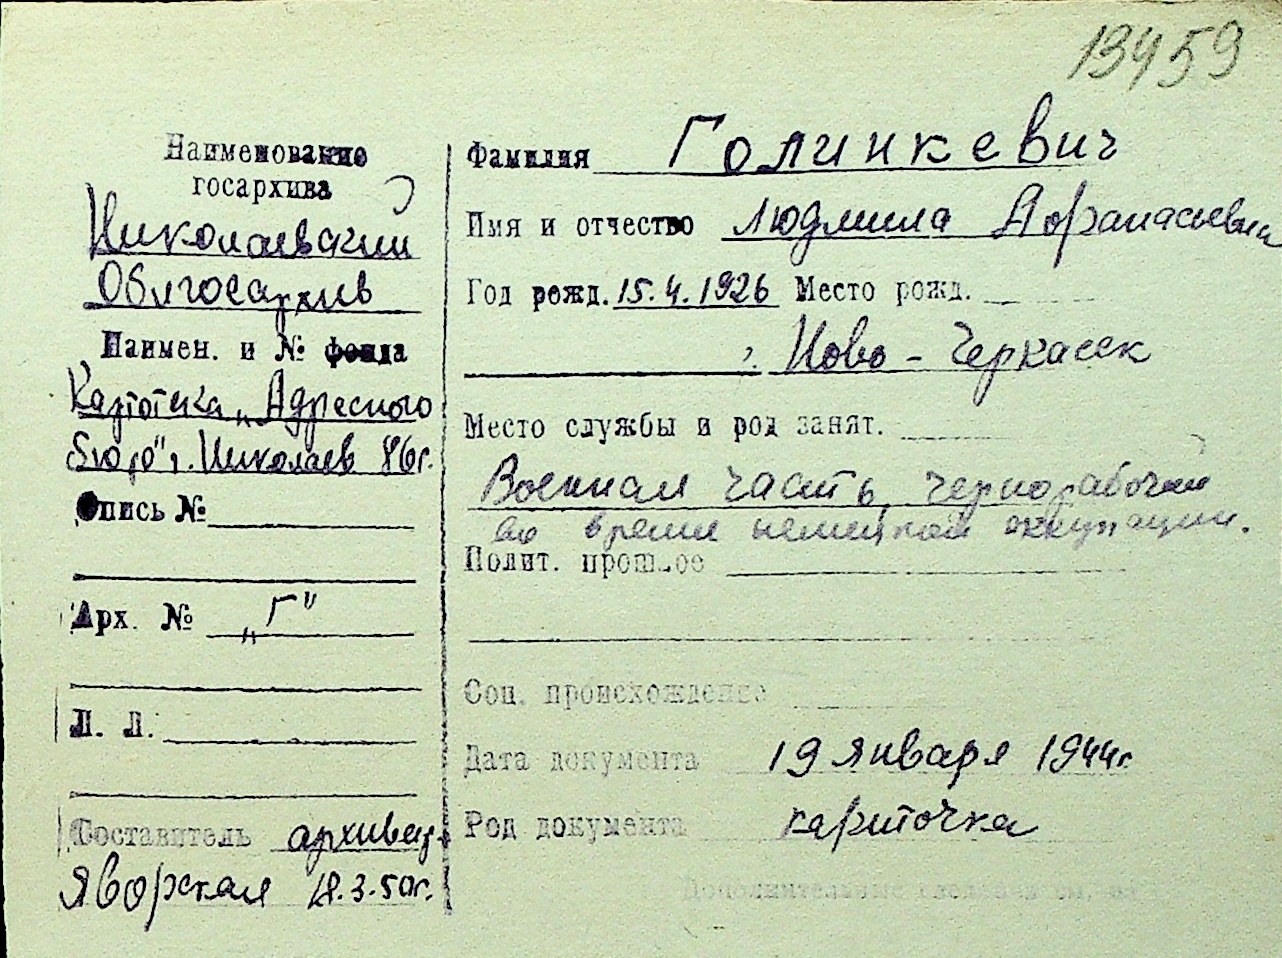 13459
Наименование
госархива
Николаевский
Облгосархив
Наимен. и № фонда
Картотека „Адресного
бюро" г. Николаев 86г.
Опись №
Арх. № „Г"
Л. Л.
Составитель архивар.
Яворская 18.3.50г.
Фамилия Голинкевич
Имя и отчество Людмила Афанасьевна
Год рожд. 15.4.1926 Место рожд.
г. Ново-Черкасск
Место службы и род занят.
Военная часть, чернорабочая
во время немецкой оккупации.
Полит. прошлое
Соц. происхождение
Дата документа 19 января 1944г.
Род документа карточка
Дополнительные сведения см. на